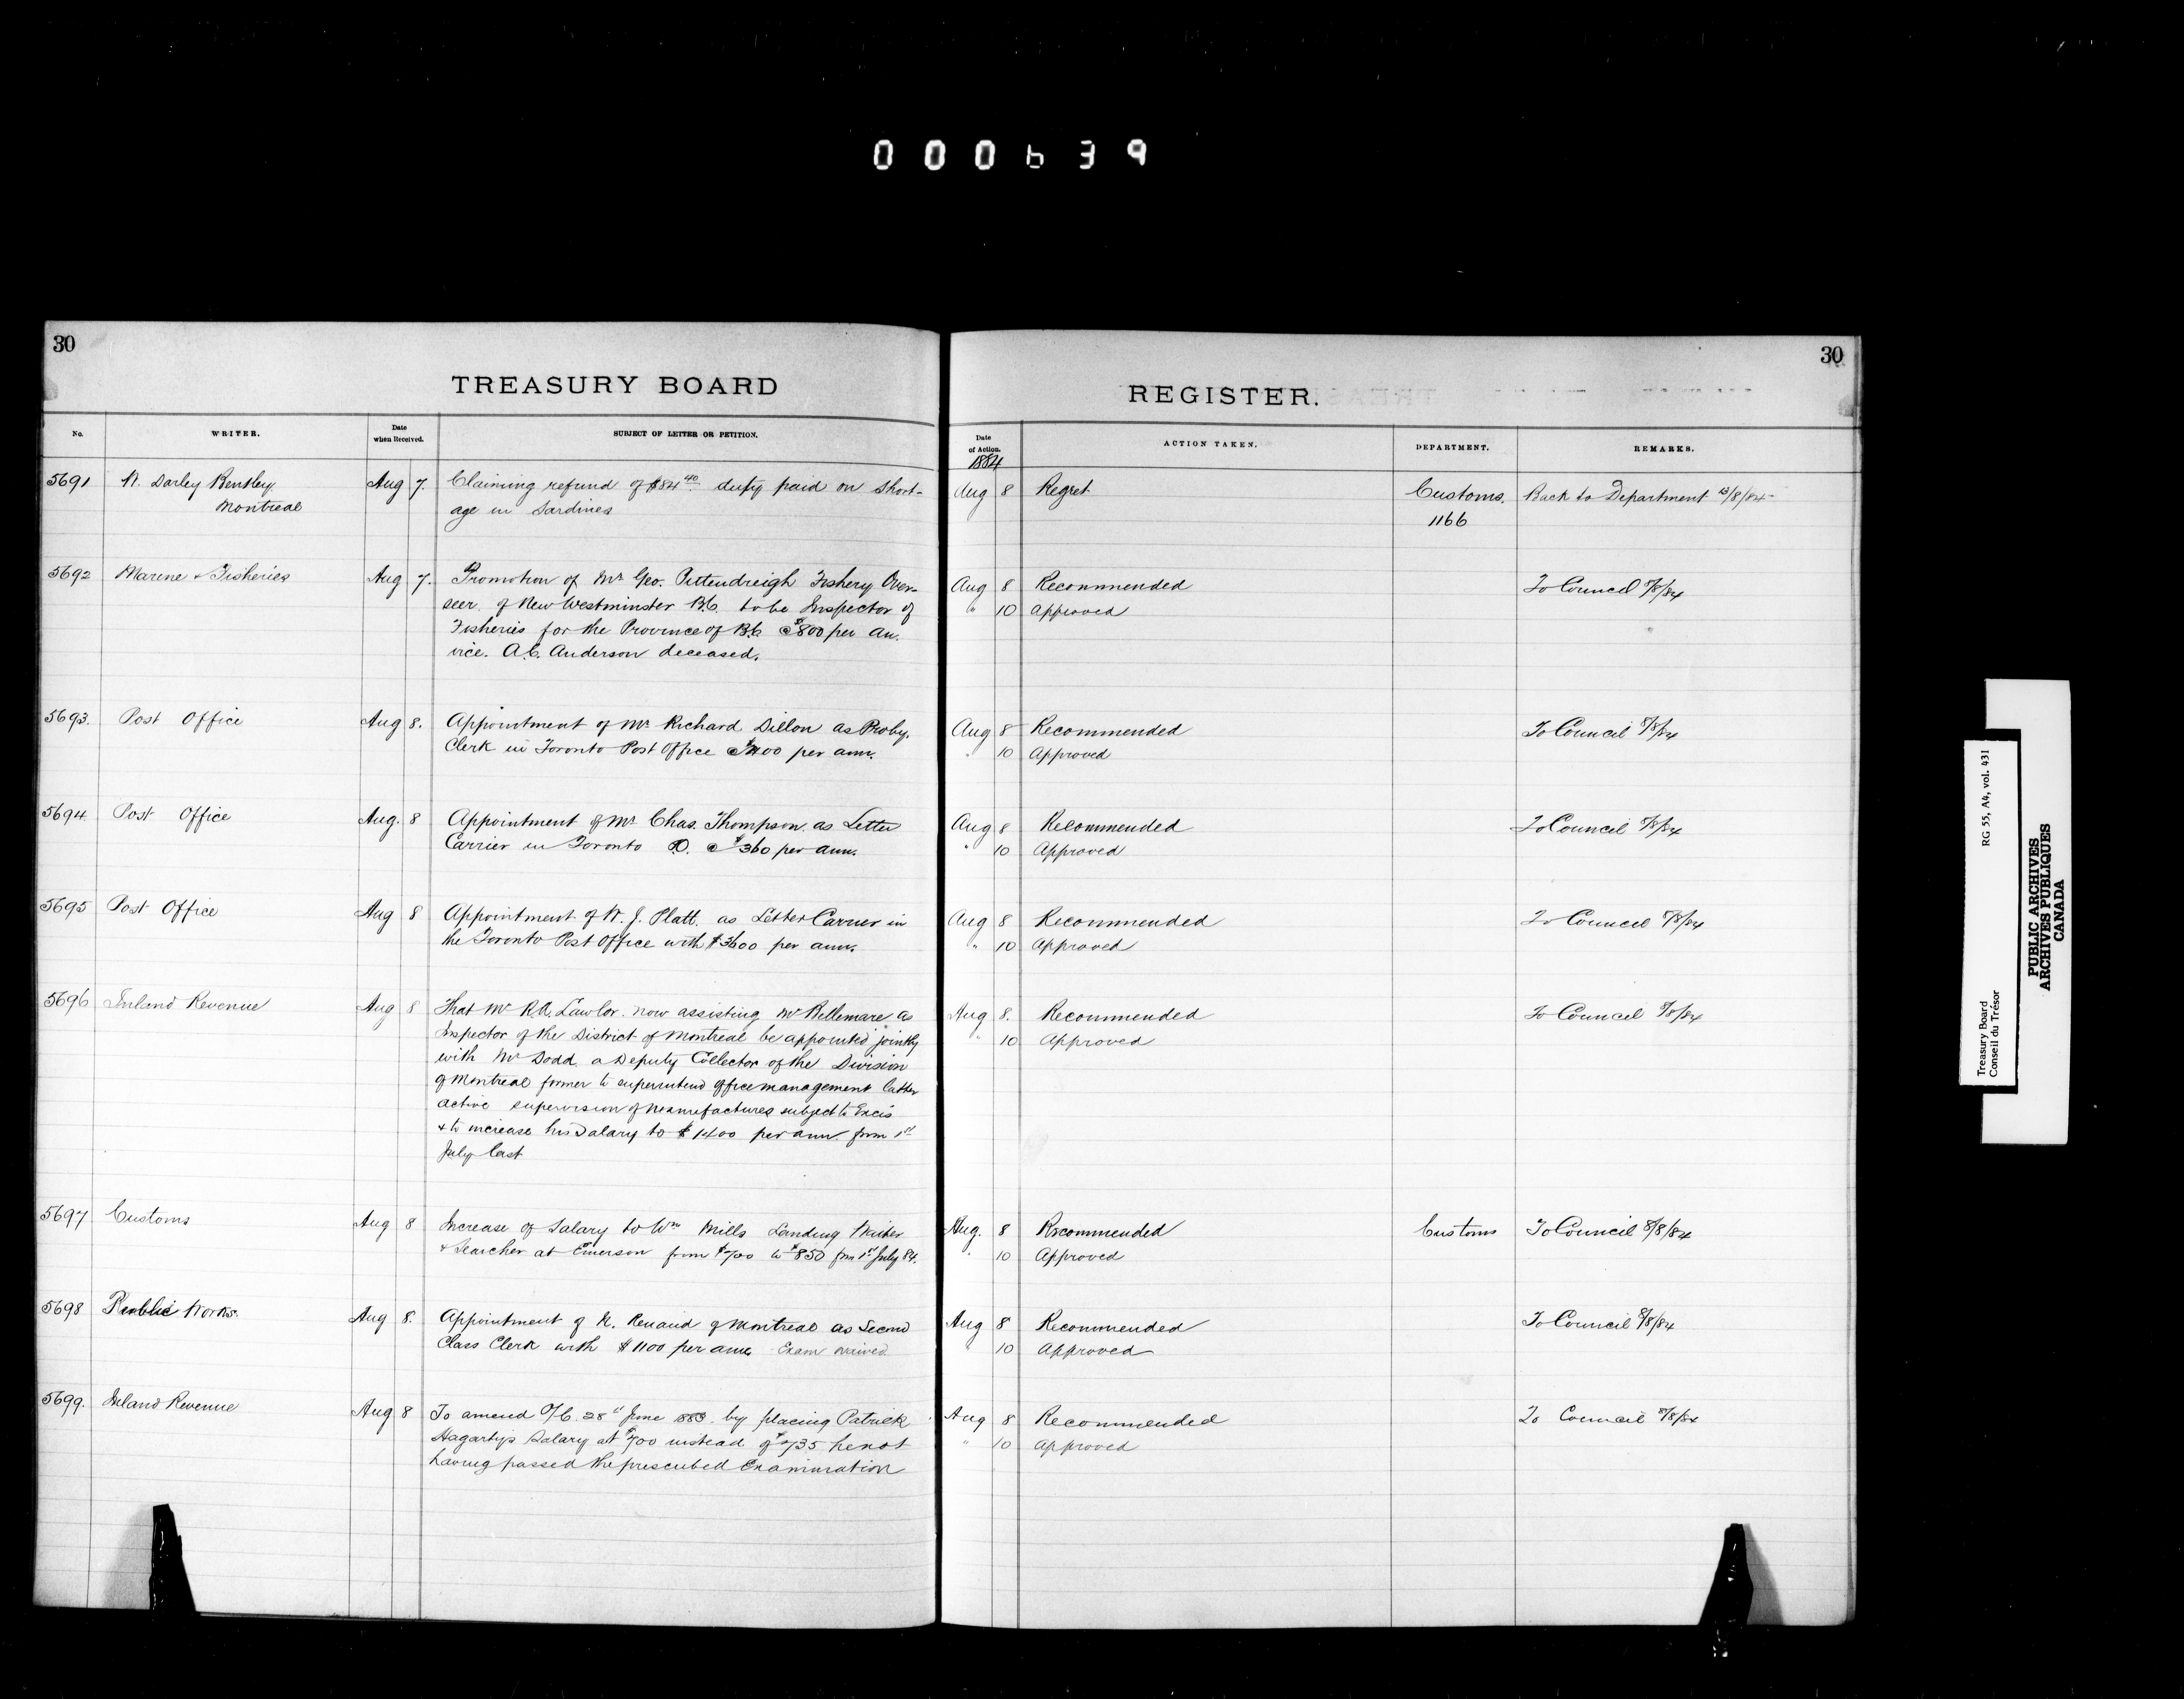 000639
30
TREASURY BOARD
No.
WRITER.
Date
when Received.
SUBJECT OF LETTER OR PETITION.
5691 W. Darley Bentley Aug 7. Claiming refund of $84 40 duty paid on Short-
Montreal age in Sardines
5692 Marine & Fisheries Aug 7. Promotion of Mr Geo. Pittendreigh Fishery Over-
seer of New Westminster B.C. to be Inspector of
Fisheries for the Province of B.C. @ $800 per an.
vice. A.C. Anderson deceased.
5693. Post Office Aug 8. Appointment of Mr Richard Dillon as Proby.
Clerk in Toronto Post Office per ann.
5694 Post Office Aug. 8 Appointment of Mr Chas. Thompson as Letter
Carrier in Toronto P.O. @ $360 per ann.
5695 Post Office Aug 8 Appointment of W. J. Platt. as Letter Carrier in
the Toronto Post Office with per ann.
5696 Inland Revenue Aug 8 That Mr R.A. Lawlor now assisting Mr Bellemare as
Inspector of the District of Montreal be appointed jointly
with Mr Dodd a Deputy Collector of the Division
of Montreal former to superintend office management latter
active supervision of manufactures subject to Excis
& to increase his Salary to $1400 per ann from 1st
July last
5697 Customs Aug 8 Increase of Salary to Wm Mills Landing Waiter
& Searcher at Emerson from $700 to $850 from 1st July 84.
5698 Public Works. Aug 8. Appointment of N. Renaud of Montreal as Second
Class Clerk with $1100 per ann Exam waived
5699. Inland Revenue Aug 8 To amend O/C. 28th June 1883 by placing Patrick
Hagarty's Salary at $700 instead of $735 he not
having passed the prescribed Examination
30
REGISTER.
Date
of Action.
ACTION TAKEN.
DEPARTMENT.
REMARKS.
1884
Aug 8 Regret Customs. Back to Department 13/8/84
1166
Aug 8 Recommended To Council 8/8/84
" 10 Approved
Aug 8 Recommended To Council 8/8/84
" 10 Approved
Aug 8 Recommended To Council 8/8/84
" 10 Approved
Aug 8 Recommended To Council 8/8/84
" 10 Approved
Aug 8. Recommended To Council 8/8/84
" 10 Approved
Aug. 8 Recommended Customs To Council 8/8/84
" 10 Approved
Aug 8 Recommended To Council 8/8/84
10 Approved
Aug 8 Recommended To Council 8/8/84
" 10 Approved
Treasury Board RG 55, A4, vol. 431
Conseil du Trésor
PUBLIC ARCHIVES
ARCHIVES PUBLIQUES
CANADA